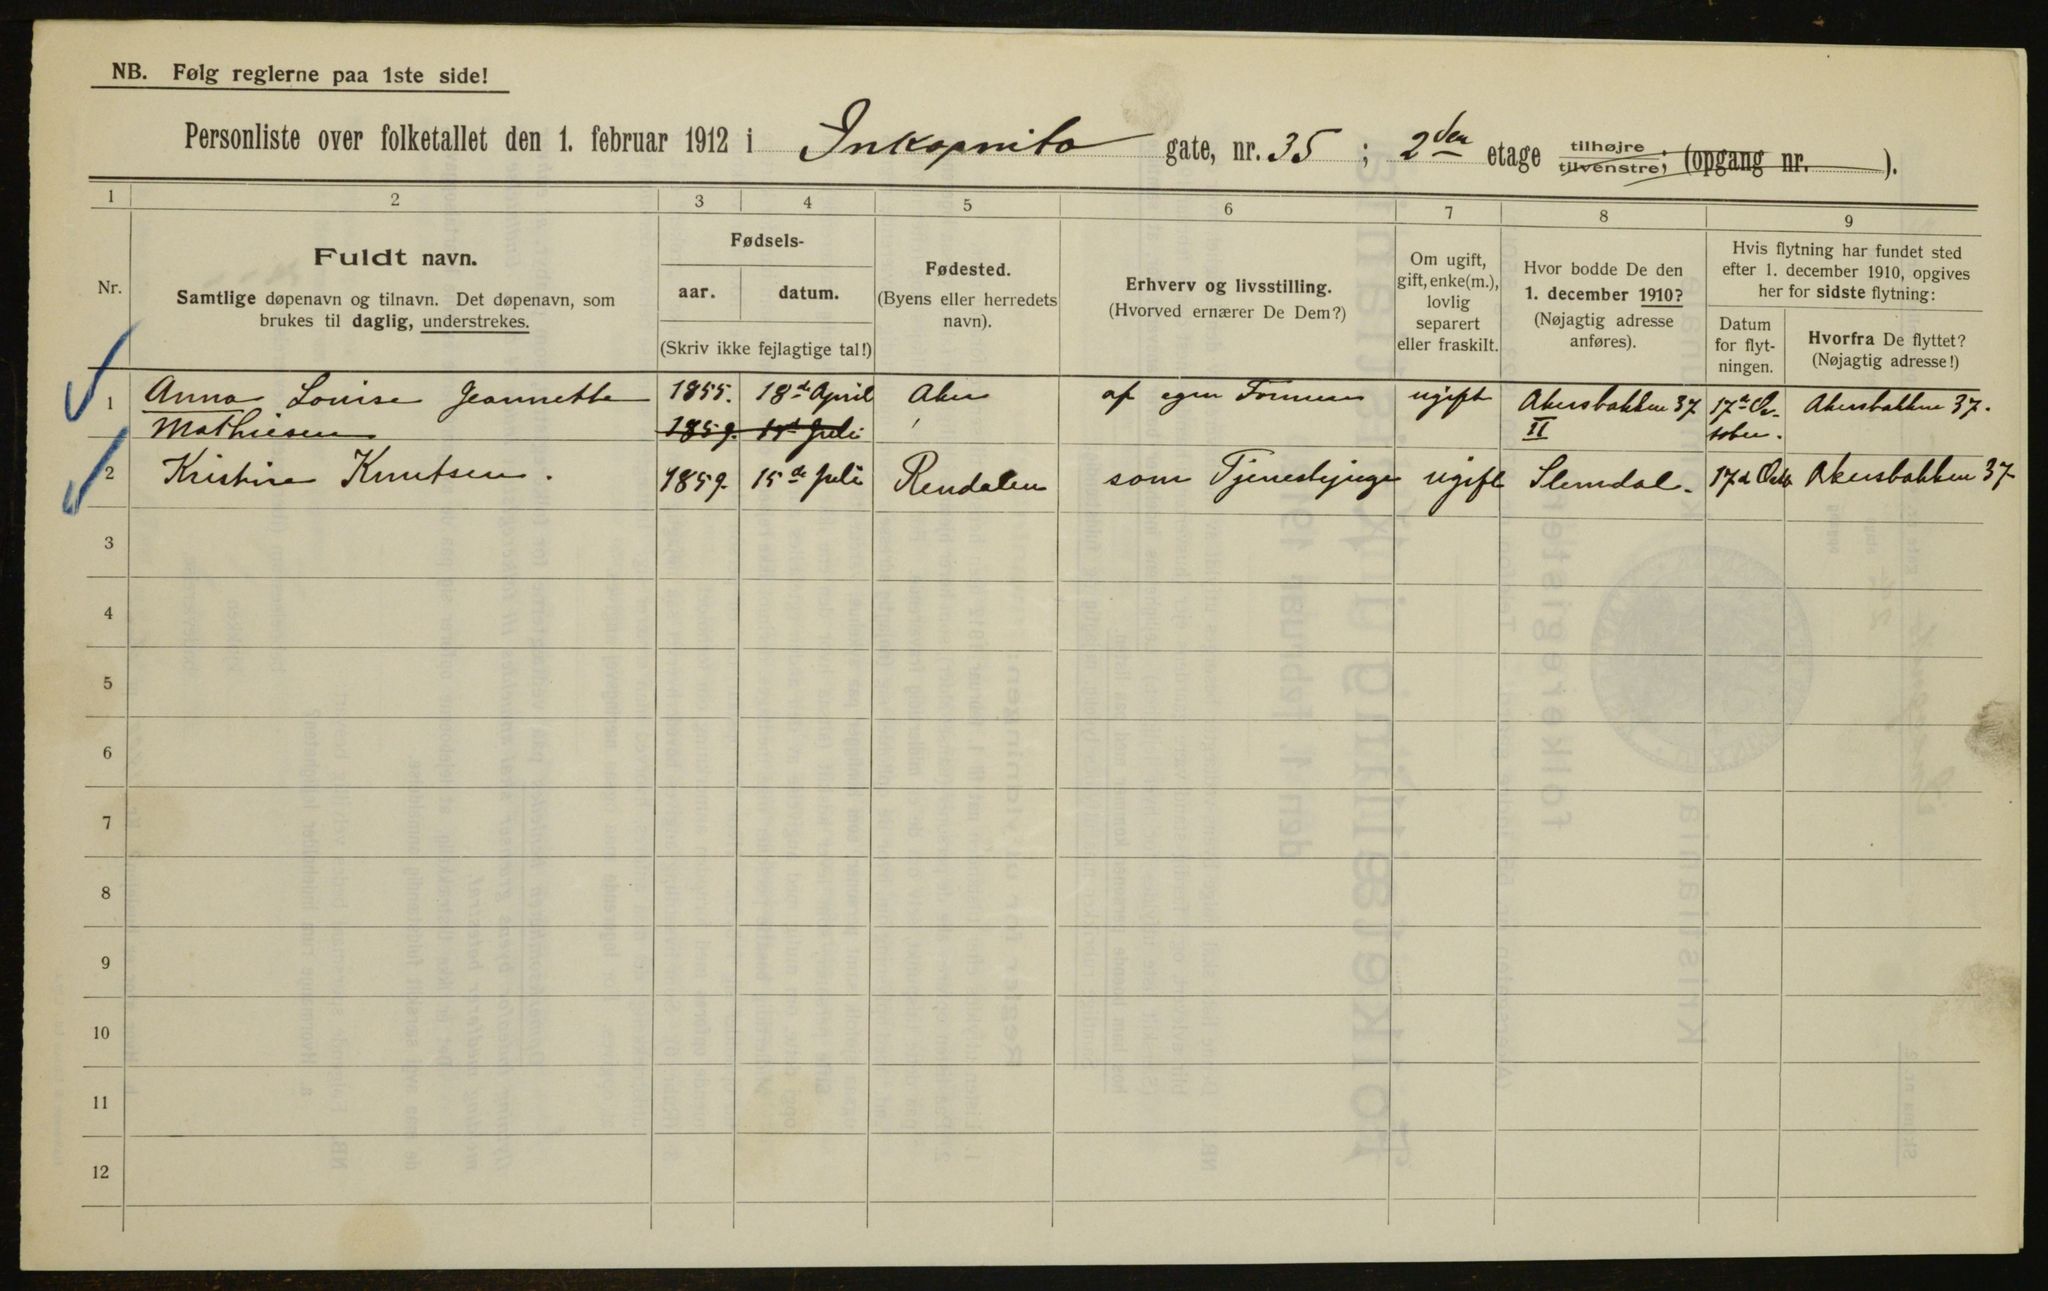 NB. Følg reglerne paa 1ste side!
Personliste over folketallet den 1. februar 1912 i Inkognito gate, nr. 35 ; 2den etage tilhøjre, tilvenstre, (opgang nr. ).
1 2 3 4 5 6 7 8 9
Nr.
Fuldt navn.
Samtlige døpenavn og tilnavn. Det døpenavn, som
brukes til daglig, understrekes.
Fødsels-
aar. datum.
(Skriv ikke fejlagtige tal!)
Fødested.
(Byens eller herredets
navn).
Erhverv og livsstilling.
(Hvorved ernærer De Dem?)
Om ugift,
gift, enke(m.),
lovlig
separert
eller fraskilt.
Hvor bodde De den
1. december 1910?
(Nøjagtig adresse
anføres).
Hvis flytning har fundet sted
efter 1. december 1910, opgives
her for sidste flytning:
Datum
for flyt-
ningen.
Hvorfra De flyttet?
(Nøjagtig adresse!)
1 Anna Louise Jeannette 1855. 18de April Aker af egen Formue ugift Akersbakken 37 17de Oc- Akersbakken 37.
Mathiesen 1859. 15de Juli II tober.
2 Kristine Knutsen. 1859. 15de Juli Rendalen som Tjenestepige ugift Slemdal. 17d Octb Akersbakken 37
3
4
5
6
7
8
9
10
11
12